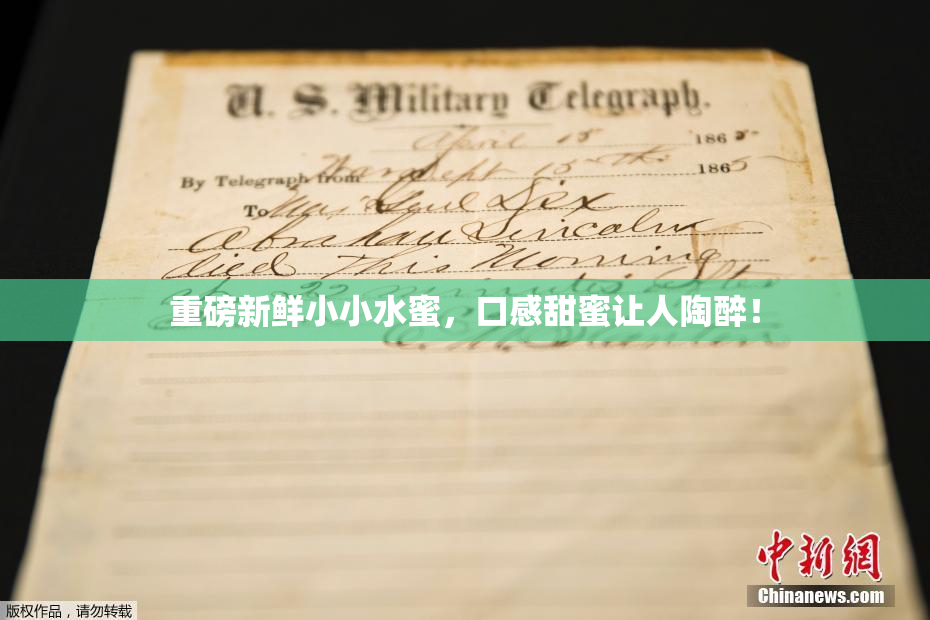 U. S. Military Telegraph.
April 15 1865
By Telegraph from War Dept 15th 1865
To Maj Genl Dix
Abraham Lincoln
died This Morning
22 minutes after
重磅新鲜小小水蜜，口感甜蜜让人陶醉！
E. M. Stanton
中新网
Chinanews.com
版权作品，请勿转载